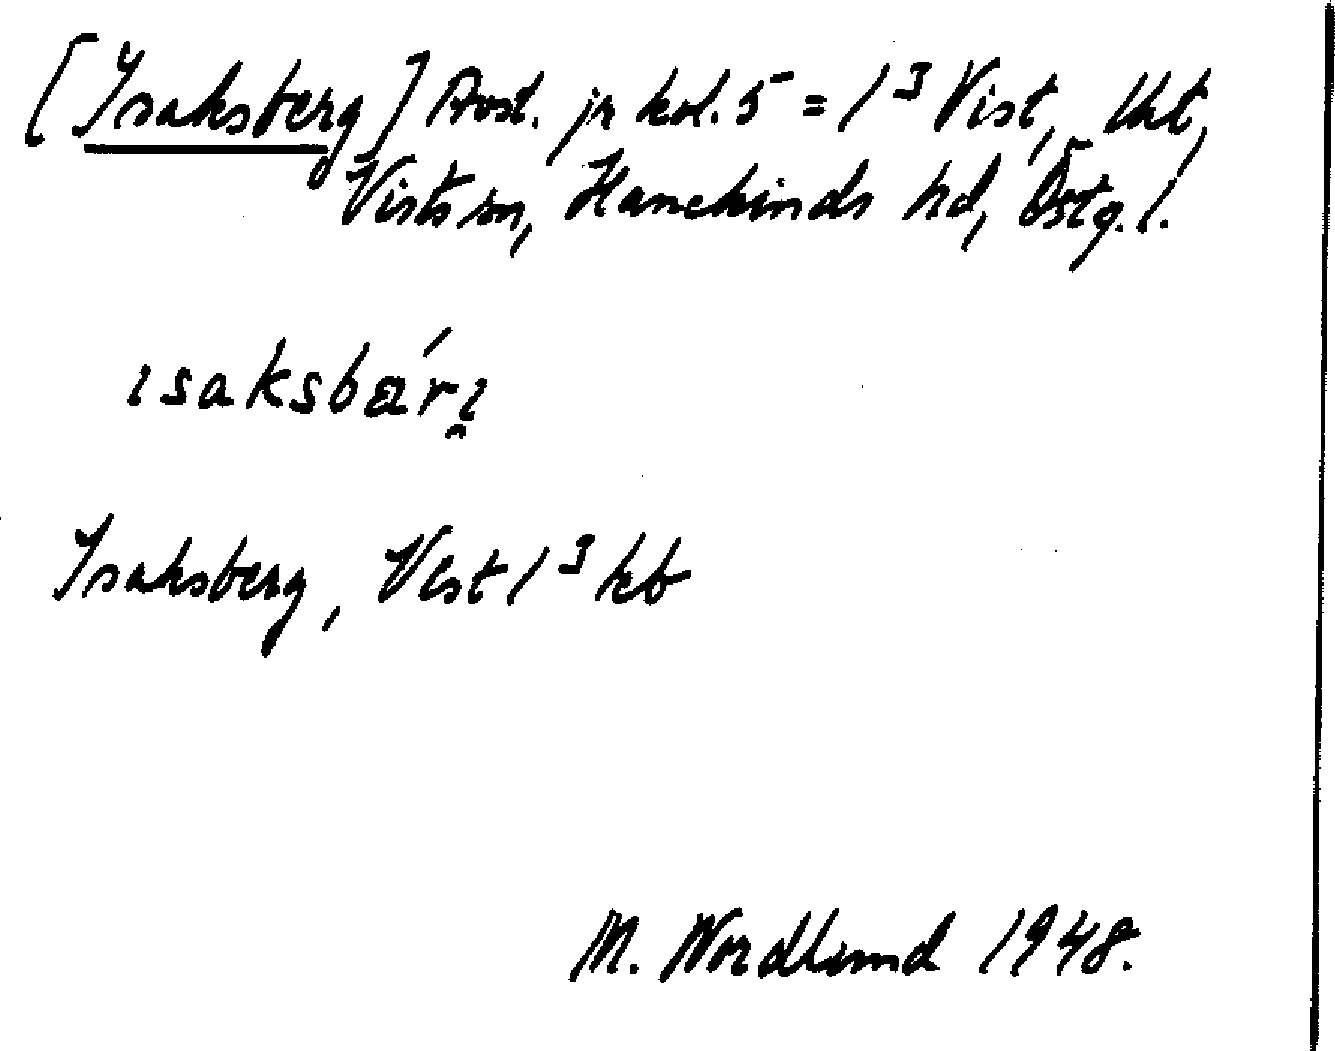 [Isaksberg] Avst. jr kol. 5 = 1³ Vist, lht,
Vists sn, Hanekinds hd, Östg. l.
ısaksbǽrı̯
Isaksberg, Vist 1³ kb
M. Nordlund 1948.